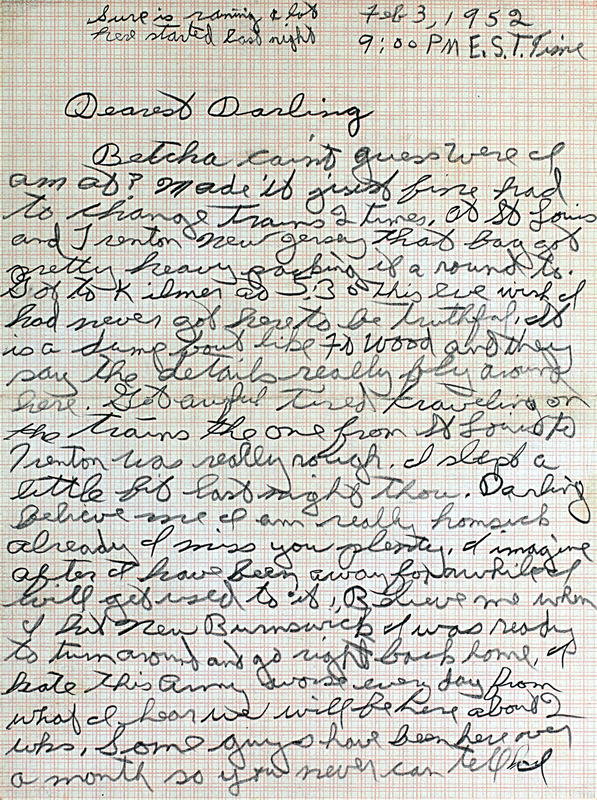 Sure is raining a lot
here started last night
Feb 3, 1952
9:00 PM E.S.T. Time
Dearest Darling
Betcha cain't guess were I
am at? Made it just fine had
to change trains 2 times, at St Louis
and Trenton New Jersey that bag got
pretty heavy packing it a round to.
Got to Kilmer at 5:30 this eve wish I
had never got here to be truthful. It
is a dump bout like Ft Wood and they
say the details really fly around
here. Got awful tired traveling on
the trains the one from St Louis to
Trenton was really rough. I slept a
little bit last night thou. Darling
believe me I am really homsick
already I miss you plenty, I imagine
after I have been away for awhile I
will get used to it, Believe me when
I hit New Burnswick I was ready
to turn around and go right back home, I
hate this Army worse every day from
what I hear we will be here about 2
wks, Some guys have been here over
a month so you never can tell